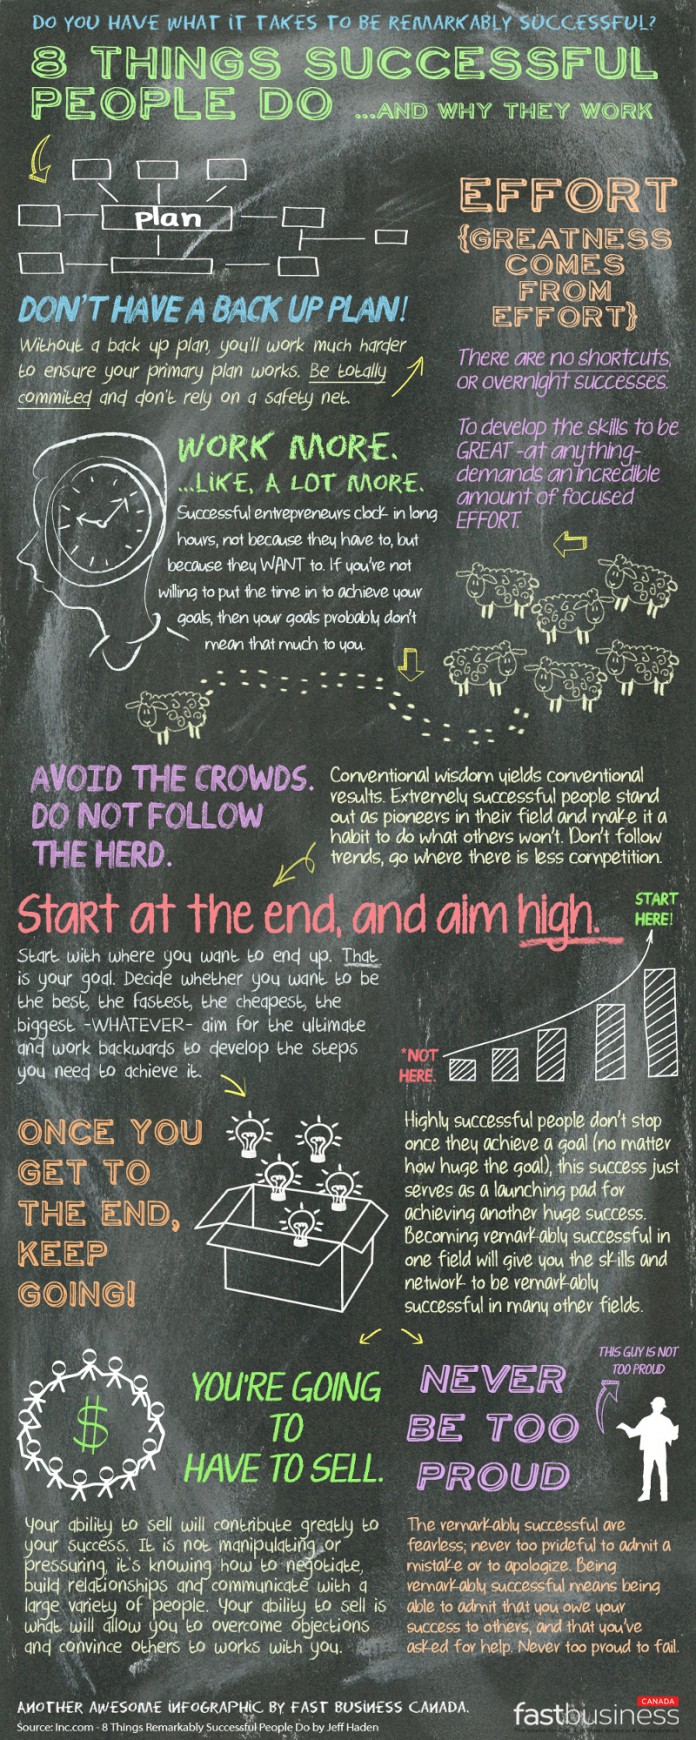 DO YOU HAVE WHAT IT TAKES TO BE REMARKABLY SUCCESSFUL?
8 THINGS SUCCESSFUL
PEOPLE DO ...AND WHY THEY WORK
plan
DON'T HAVE A BACK UP PLAN!
Without a back up plan, you'll work much harder
to ensure your primary plan works. Be totally
commited and don't rely on a safety net.
EFFORT
{GREATNESS
COMES
FROM
EFFORT}
There are no shortcuts,
or overnight successes.
To develop the skills to be
GREAT -at anything-
demands an incredible
amount of focused
EFFORT.
WORK MORE.
...LIKE, A LOT MORE.
Successful entrepreneurs clock in long
hours, not because they have to, but
because they WANT to. If you're not
willing to put the time in to achieve your
goals, then your goals probably don't
mean that much to you.
AVOID THE CROWDS.
DO NOT FOLLOW
THE HERD.
Conventional wisdom yields conventional
results. Extremely successful people stand
out as pioneers in their field and make it a
habit to do what others won't. Don't follow
trends, go where there is less competition.
Start at the end, and aim high.
START
HERE!
Start with where you want to end up. That
is your goal. Decide whether you want to be
the best, the fastest, the cheapest, the
biggest -WHATEVER- aim for the ultimate
and work backwards to develop the steps
you need to achieve it.
*NOT
HERE.
ONCE YOU
GET TO
THE END,
KEEP
GOING!
Highly successful people don't stop
once they achieve a goal (no matter
how huge the goal), this success just
serves as a launching pad for
achieving another huge success.
Becoming remarkably successful in
one field will give you the skills and
network to be remarkably
successful in many other fields.
$
YOU'RE GOING
TO
HAVE TO SELL.
NEVER
BE TOO
PROUD
THIS GUY IS NOT
TOO PROUD
Your ability to sell will contribute greatly to
your success. It is not manipulating or
pressuring, it's knowing how to negotiate,
build relationships and communicate with a
large variety of people. Your ability to sell is
what will allow you to overcome objections
and convince others to works with you.
The remarkably successful are
fearless; never too prideful to admit a
mistake or to apologize. Being
remarkably successful means being
able to admit that you owe your
success to others, and that you've
asked for help. Never too proud to fail.
ANOTHER AWESOME INFOGRAPHIC BY FAST BUSINESS CANADA.
Source: Inc.com - 8 Things Remarkably Successful People Do by Jeff Haden
CANADA
fastbusiness